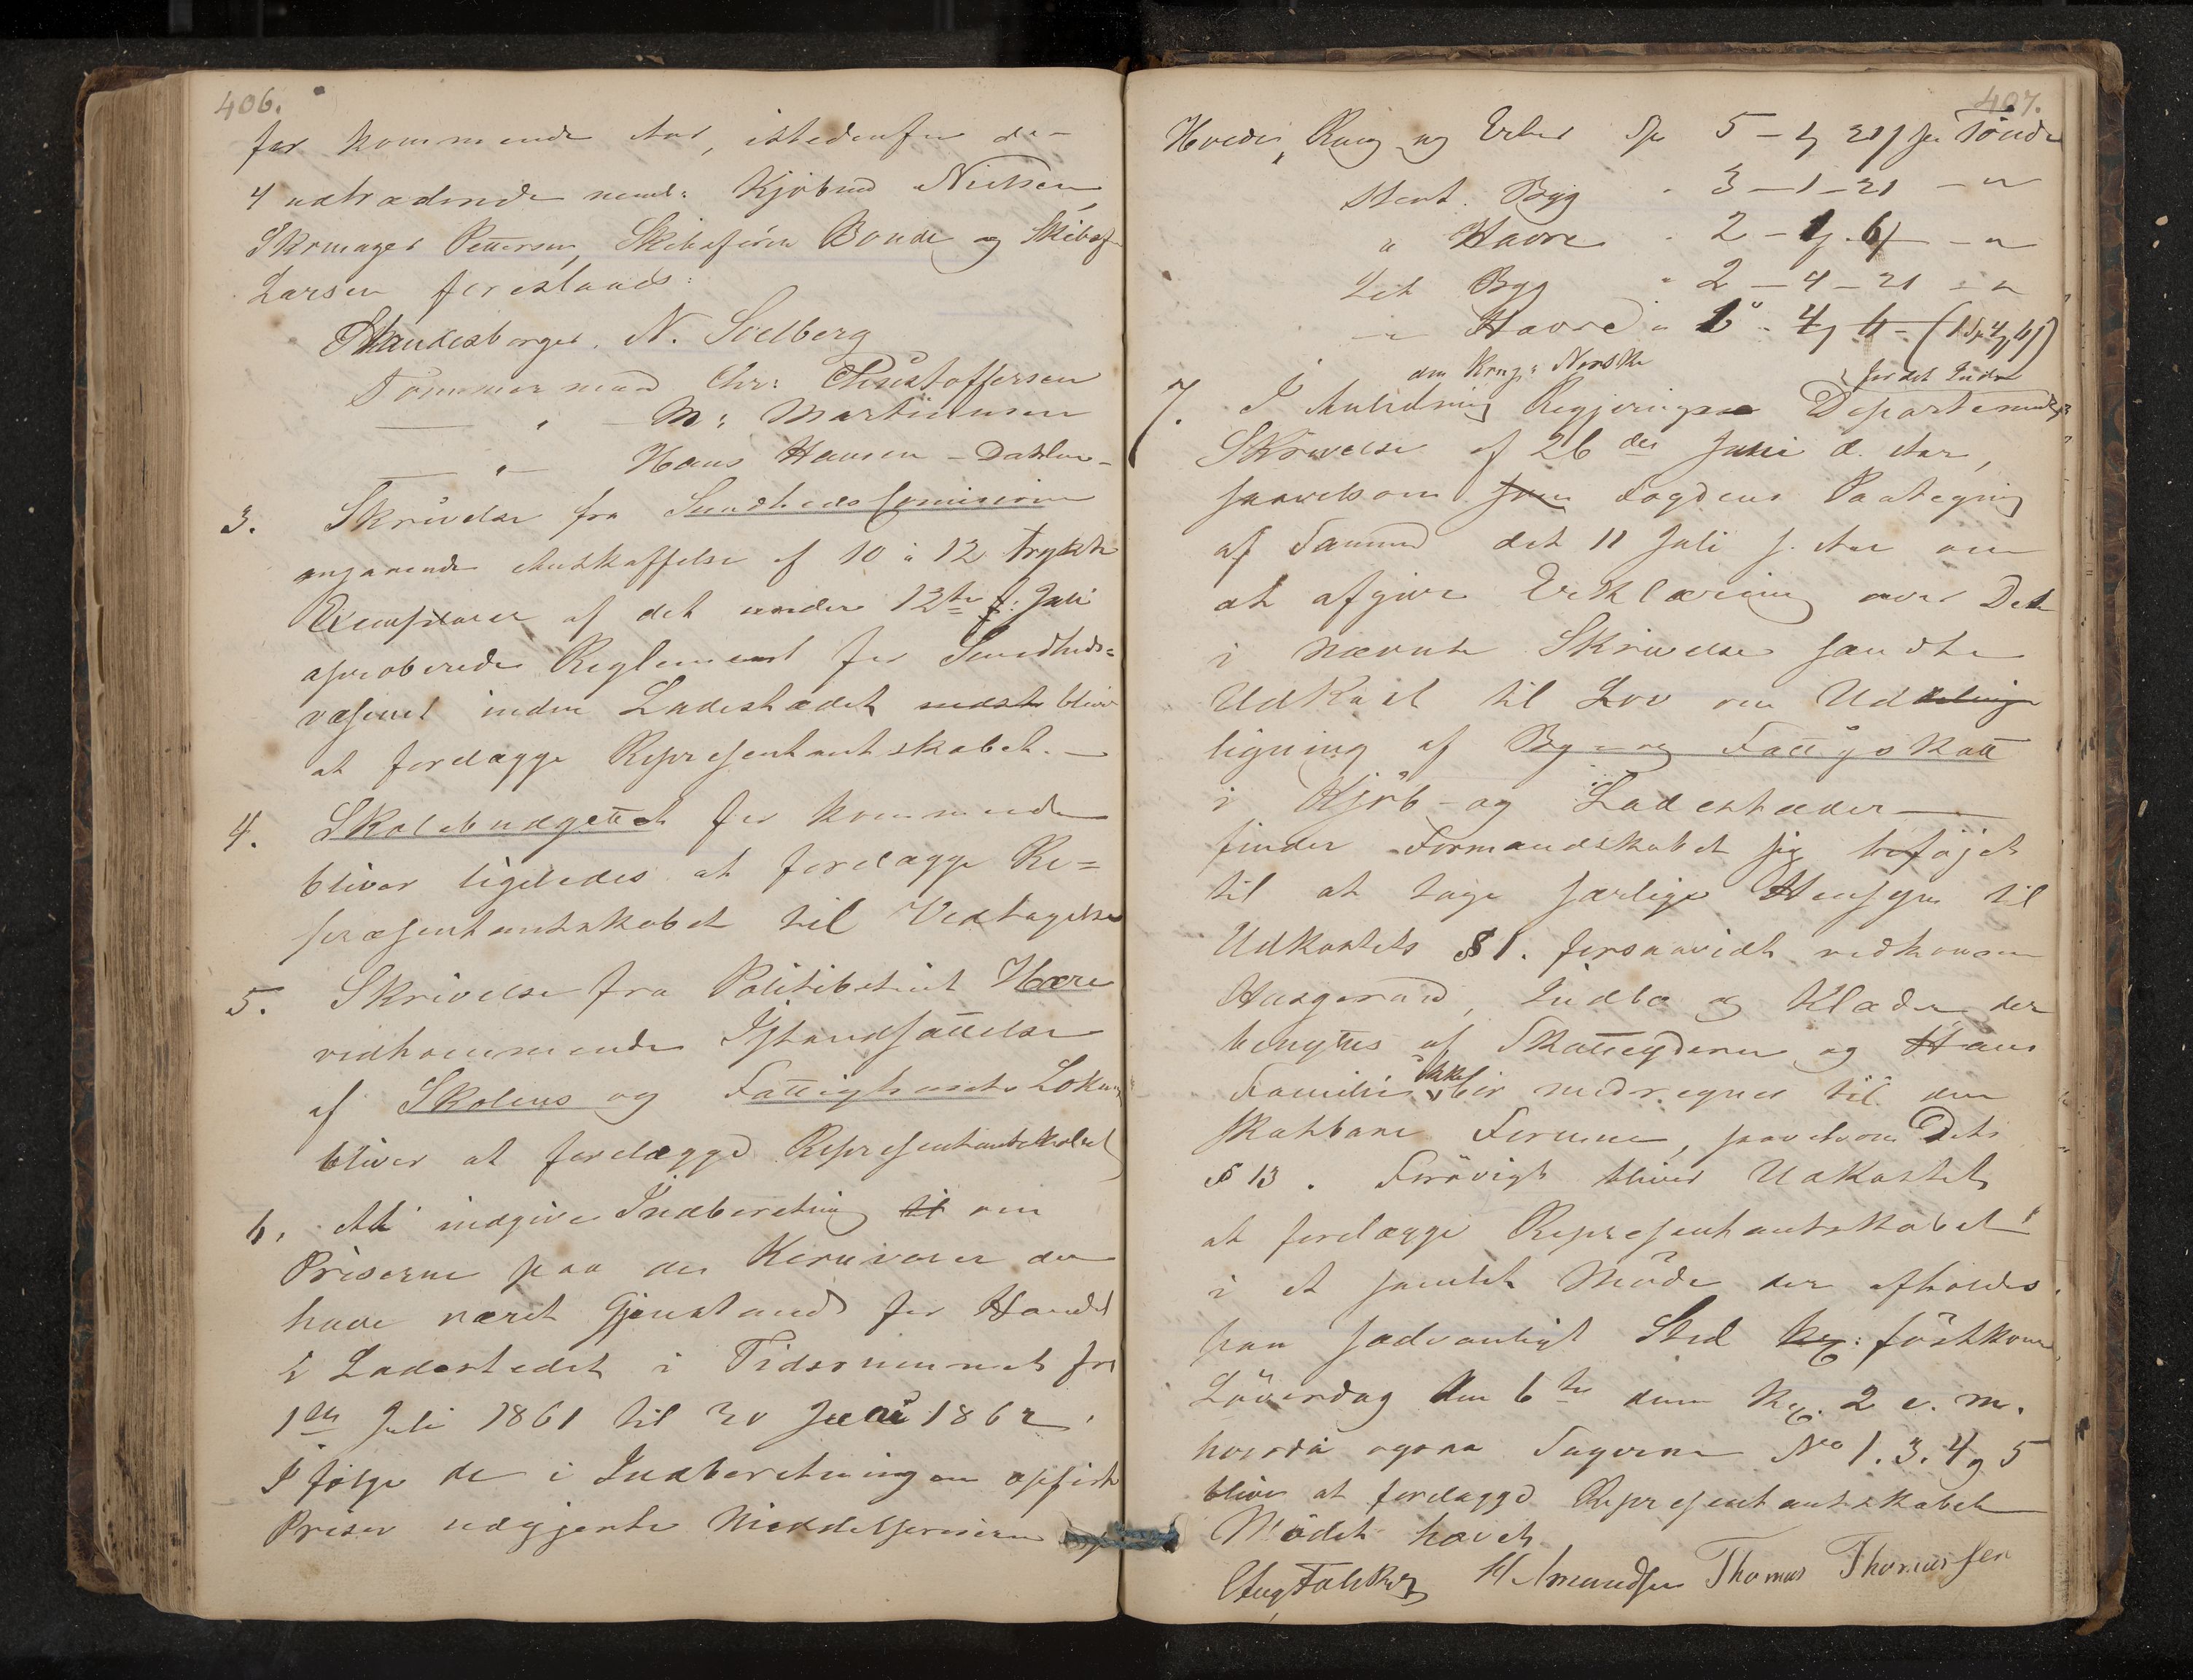 406.
for kommende Aar, istedenfor de
4 udtrædende neml: Kjøbmd Nielsen
Skrmager Pettersen, Skibsfører Bonde og Skibsf
Larsen foreslaaes:
Handelsborger. N. Soelberg
Tømmermand Chr: Christoffersen
— " — M: Martinsen
— " — Hans Hansen - Dahlen -
3. Skrivelse fra Sundheds Comissionen
angaaende Anskaffelse af 10 à 12 trykte
Exemplarer af det under 12te f: Juli
aproberede Reglement for Sundheds=
væsenet inden Ladestedet bliver
at forelægge Repræsentantskabet. —
4. Skolebudgettet for kommende
bliver ligeledes at forelægge Re=
præsentantskabet til Vedtagelse
5. Skrivelse fra Politibetjent Hære
vedkommende Istandsættelse
af Skolens og Fattighusets Lokaler
bliver at forelægge Repræsentantskabet
6. At indgive Indberetning til om
Priserne paa de Kornvarer der
have været Gjenstand for Handel
i Ladestedet i Tidsrummet fra
1ste Juli 1861 til 30 Juni 1862.
Ifølge de i Indberetningen opførte
Priser udgjorde Middelpriserne
407.
Hvede, Rug og Erter Sp 5 - 2 21 s pr Tønde
Stort Byg " 3 - 1 - 21 - "
" Havre " 2 - 1 . 6 - "
Let Byg " 2 - 4 - 21 - "
— Havre " 1 - 4 6 - (1 Sp 4 6)
den Kongl: Norske
for det Indre
7. I Anledning Regjerings Departements
Skrivelse af 26 de Juni d. Aar,
saavelsom Fogdens Paategning
af Samme det 11 Juli s. Aar om
at afgive Erklæring over Det
i nævnte Skrivelse sendte
Udkast til Lov om Uddeling
ligning af By- og Fattigskatt
i Kjøb- og Ladestæder —
finder Formandskabet sig beføjet
til at tage særlige Hensyn til
Udkastets § 1. forsaavidt vedkommer
Husgeraad, Indbo og Klæder der
benyttes af Skatteyderen og Hans
Familie ikke bør medregnes til den
skatbare Formue, saavelsom Dets
§ 13. Forøvrigt bliver Udkastet
at forelægge Repræsentantskabet
i et samlet Møde der afholdes
paa sædvanligt Sted kl: førstkom.
Løverdag den 6te dennes Kl. 2 e. m.
hvorda ogsaa Sagerne No 1. 3. 4 og 5
bliver at forelægge Repræsentantskabet
Mødet hævet
H Amundsen Thomas Thomassen